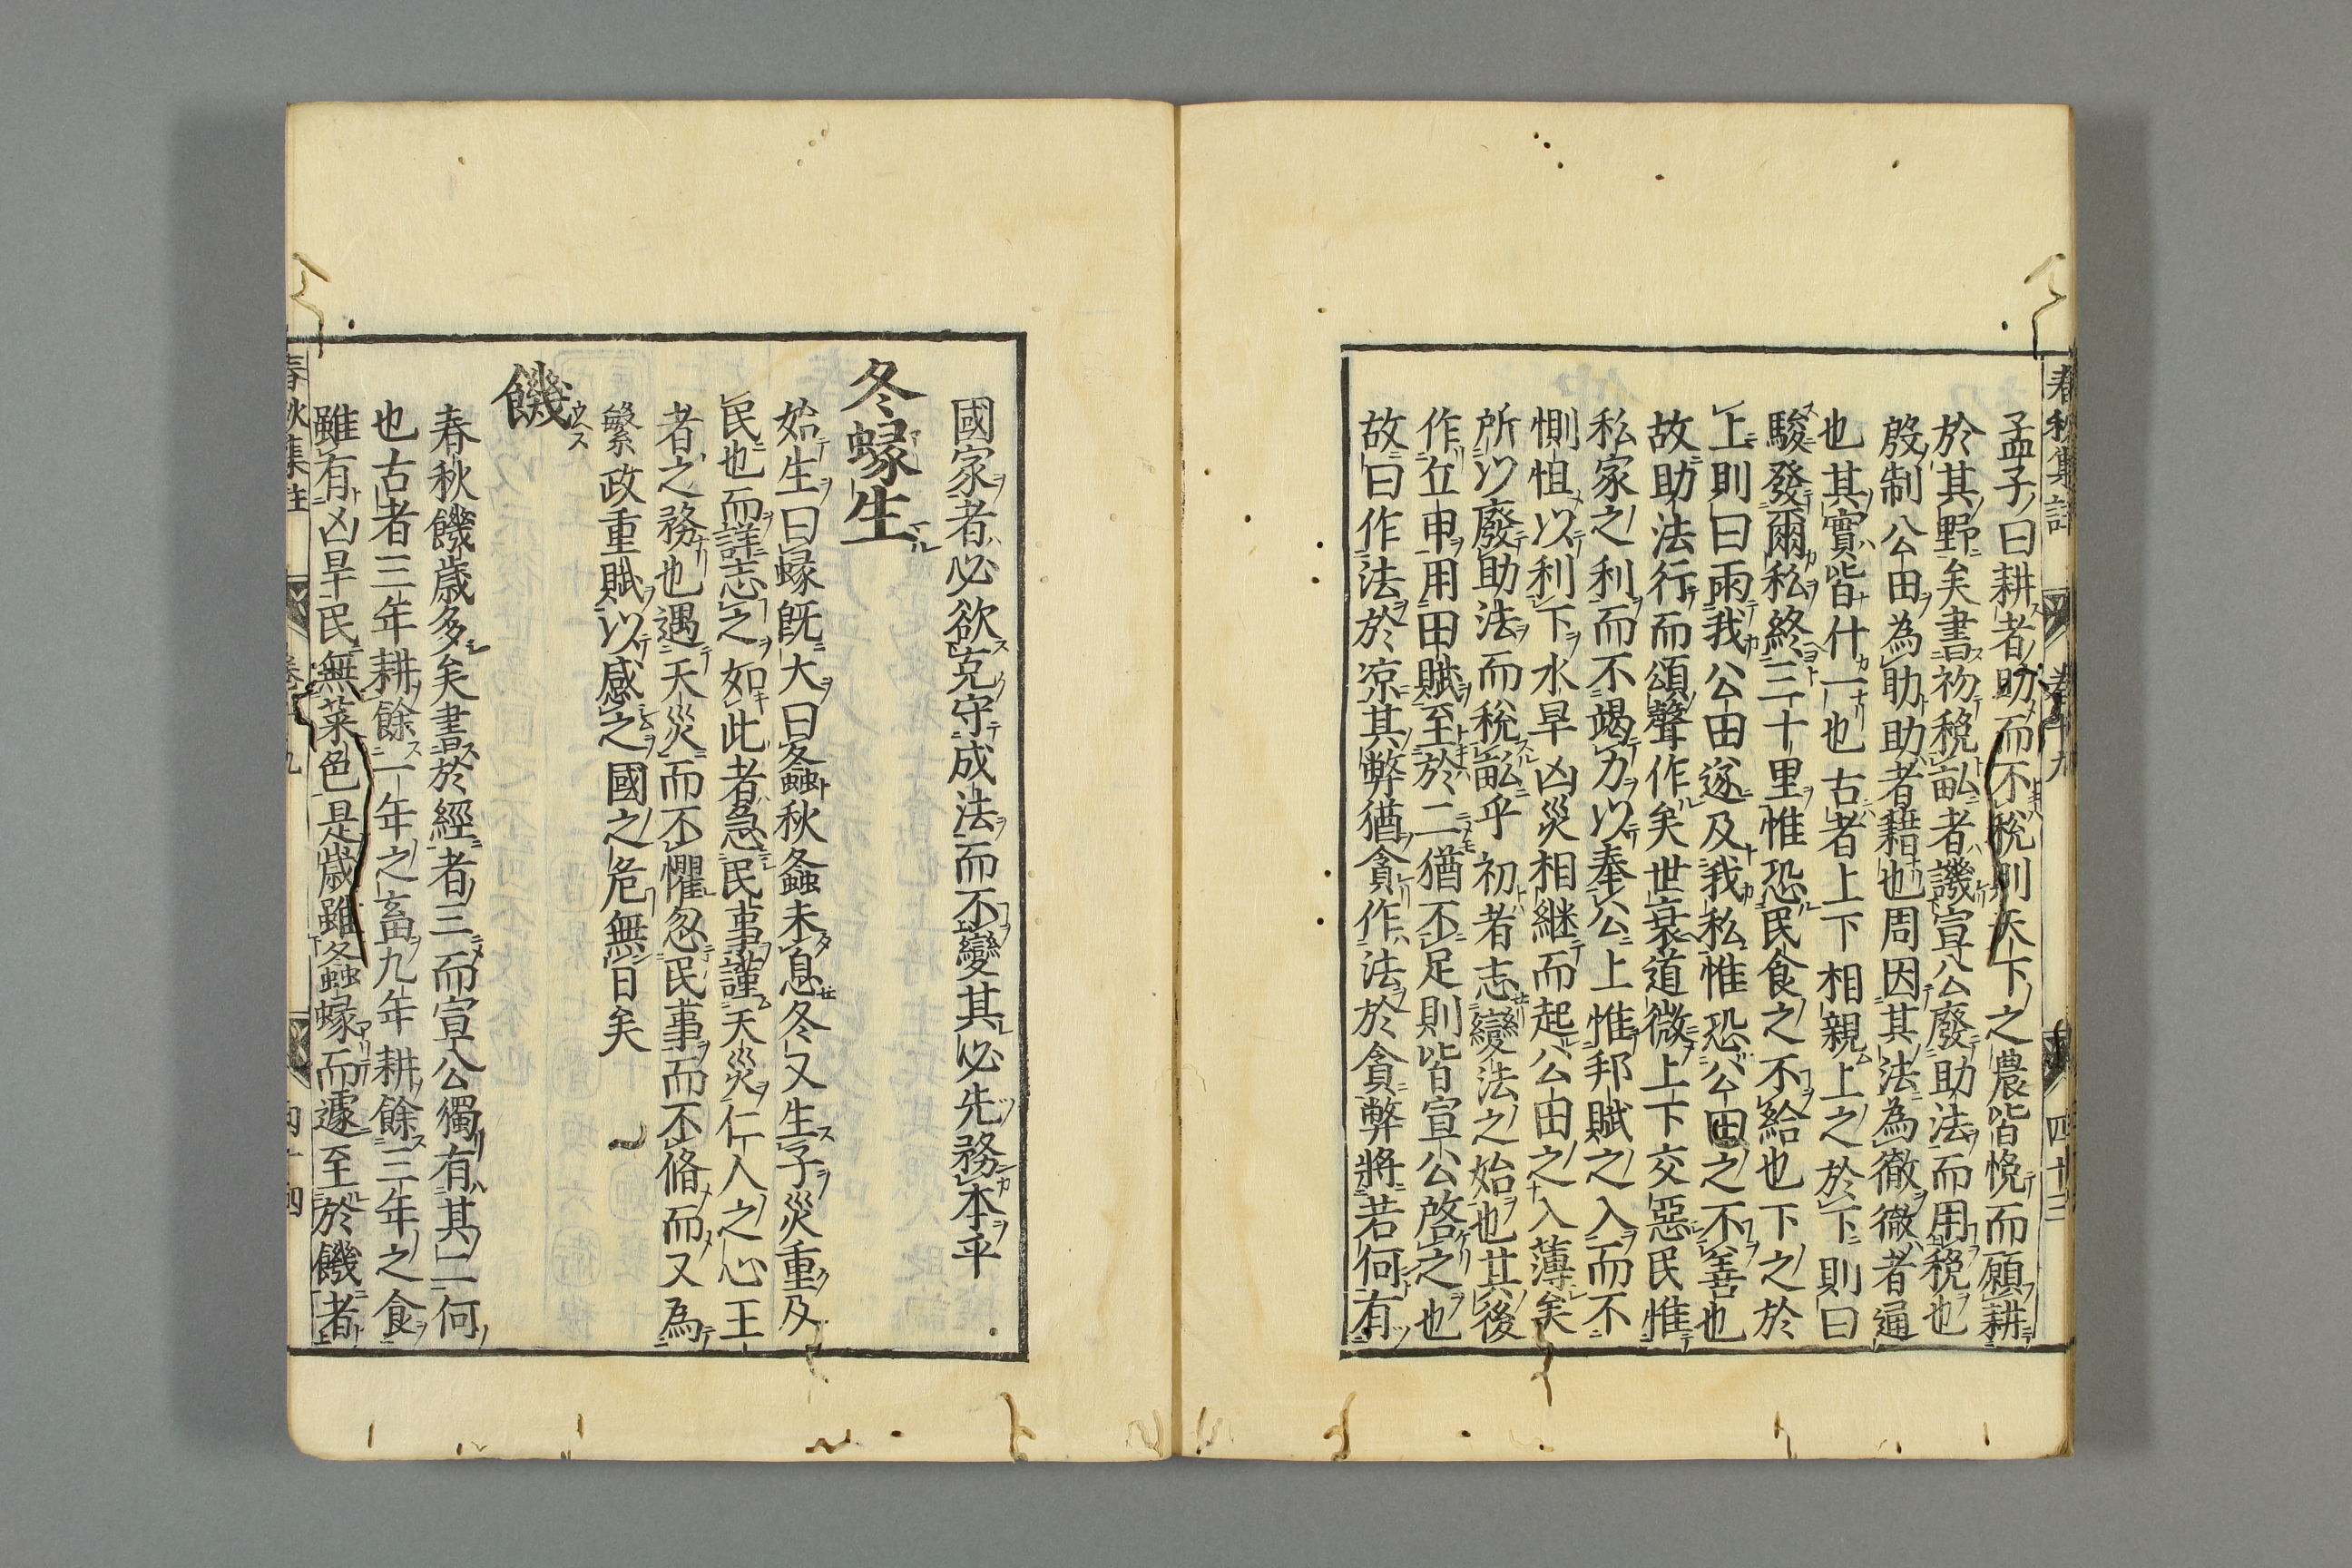 春秋集註 卷十九 四十三
孟子曰耕者助而不稅則天下之農皆悅而願耕
於其野矣書初稅畝者譏宣公廢助法而用稅也
殷制公田為助助者藉也周因其法為徹徹者通
也其實皆什一也古者上下相親上之於下則曰
駿發爾私終三十里惟恐民食之不給也下之於
上則曰雨我公田遂及我私惟恐公田之不善也
故助法行而頌聲作矣世衰道微上下交惡民惟
私家之利而不竭力以奉公上惟邦賦之入而不
惻怛以利下水旱凶災相繼而起公田之入薄矣
所以廢助法而稅畝乎初者志變法之始也其後
作丘甲用田賦至於二猶不足則皆宣公啓之也
故曰作法於凉其弊猶貪作法於貪弊將若何有
國家者必欲克守成法而不變其必先務本乎
冬蝝生
始生曰蝝既大曰螽秋螽未息冬又生子災重及
民也而詳志之如此者急民事謹天災仁人之心王
者之務也遇天災而不懼忽民事而不脩而又為
繁政重賦以感之國之危無日矣
饑
春秋饑歲多矣書於經者三而宣公獨有其二何
也古者三年耕餘一年之畜九年耕餘三年之食
雖有凶旱民無菜色是歲雖螽蝝而遽至於饑者
春秋集註 卷十九 四十四